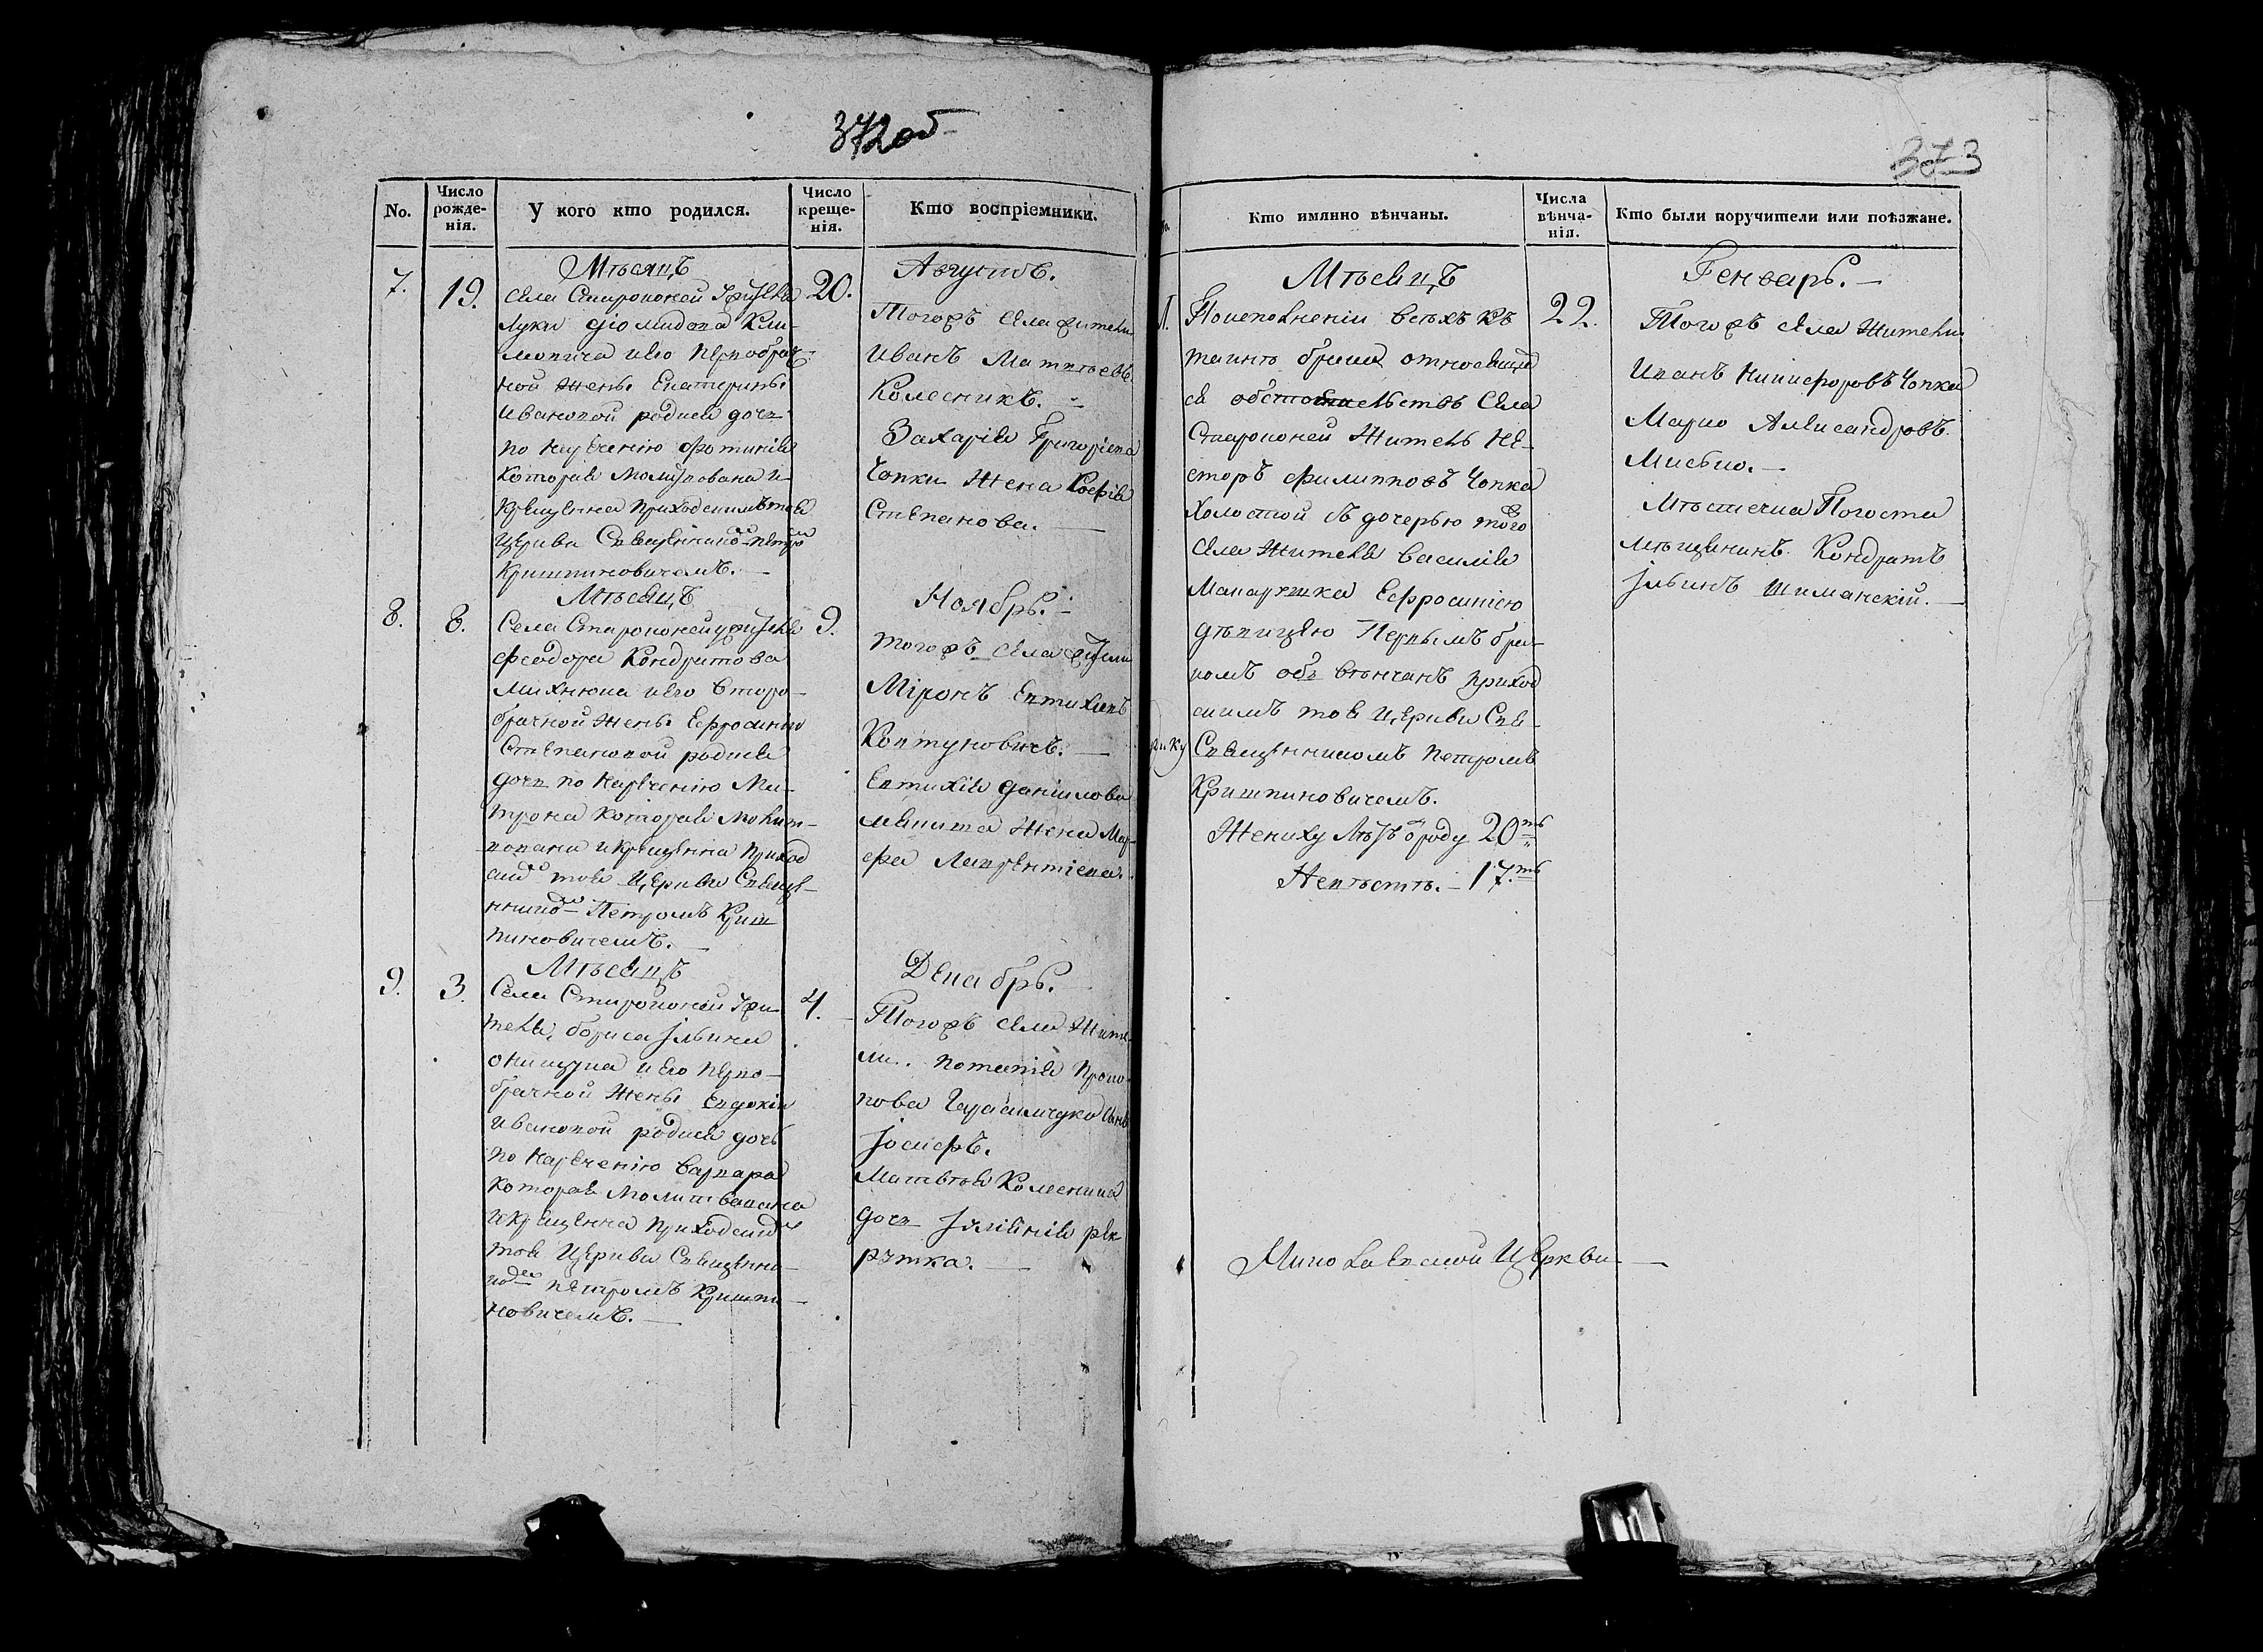 372об
No.
Число рожде-нія.
У кого кто родился.
Число креще-нія.
Кто воспріемники.
Мѣсяцъ
Августъ.
7.
19.
20.
села Староконей жителя
Луки Діомидова Кли-
мовича и его первобрач-
ной жены Екатерины
Ивановой родися дочь
по нареченію Фотинія
которая молитвована и
крещенна приходскимъ тоя
церкви Священником Петро
Кришпиновичемъ.
Тогожъ села жители
Иванъ Матвѣевъ
Колесникъ.
Захарія Григоріева
Чопки жена Софія
Степанова.
Мѣсяцъ
Ноябрь.
8.
8.
9.
Села Староконей жителя
Феодора Кондратова
Михнюка и его второ-
брачной жены Ефросиніи
Степановой родися
дочь по нареченію Ма-
трона которая молит-
вована и крещенна приход
ским тоя церкви Священ-
ником Петромъ Криш
пиновичемъ.
тогожъ села жители
Міронъ Евтихіевъ
Ковтуновичъ.
Евтихія Даніилова
жена Мар-
фа Лаврентіева.
Мѣсяцъ
Декабрь.
9.
3.
4.
Села Староконей жи-
теля, Бориса Ільина
Онищука и его перво-
брачной жены Евдокіи
Ивановой родися дочь
по нареченію Варвара
которая молитвована
и крещенна приходским
тоя церкви Священни-
ком Петромъ Кришпи-
новичемъ.
Тогожъ села жите-
ли. Потапія Проко-
пова Герасимчука сынъ
Іосифъ.
Матвѣя Колесника
дочь Іуліянія рек
рутка.
373
Кто имянно вѣнчаны.
Числа вѣнча-нія.
Кто были поручители или поѣзжане.
Мѣсяцъ
Генварь.
1.
22.
По исполненіи всѣхъ къ
таинъ брака относящих
ся обстоятельствъ села
Староконей житель Не-
сторъ Филипповъ Чопка
холостой съ дочерью того
села жителя Василія
Макарчика Ефросиніею
дѣвицею первымъ бра-
комъ обвѣнчанъ приход
скимъ тоя церкви Свя-
Священникомъ Петромъ
Кришпиновичемъ.
Жениху лѣтъ отроду 20ть
Невѣстѣ. 17ть
Тогожъ села жители
Иванъ Никифоровъ Чопка
Марко Александровъ
Мисько.
Мѣстечка Погоста
мѣщанинъ Кондратъ
Ільинъ Шиманскій.
Церкви